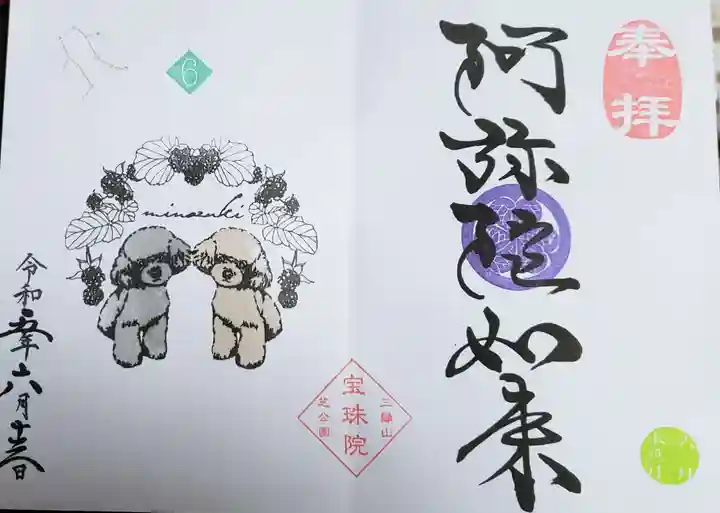 奉拝
阿弥陀如来
三縁山
宝珠院
芝公園
6
minazuki
令和五年六月十三日
六月
水無月